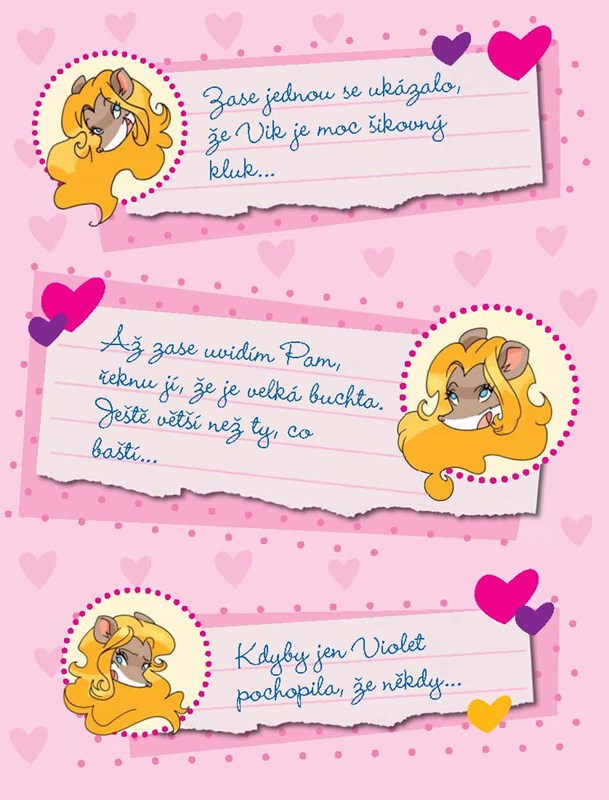 Zase jednou se ukázalo,
že Vik je moc šikovný
kluk...
Až zase uvidím Pam,
řeknu jí, že je velká buchta.
Ještě větší než ty, co
baští...
Kdyby jen Violet
pochopila, že někdy...